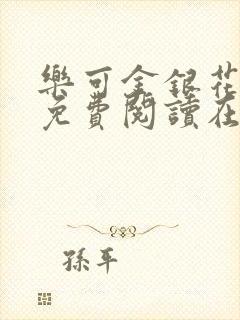 樂可金銀花
免費閱讀在
孫平